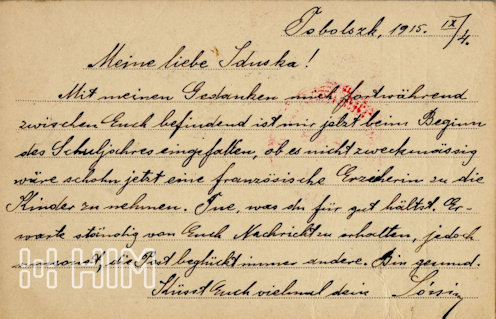 Tobolszk, 1915. IX/4.
Meine liebe Iduska!
Mit meinen Gedanken mich fortwährend
zwischen Euch befindend ist mir jetzt beim Beginn
des Schuljahres eingefallen, ob es nicht zweckmässig
wäre schohn jetzt eine französische Erzieherin zu die
Kinder zu nehmen. Tue, was du für gut hältst. Er-
warte ständig von Euch Nachricht zu erhalten, jedoch
umsonst, die Post beglückt immer andere. Bin gesund.
Küsst Euch vielmal dein
HIM